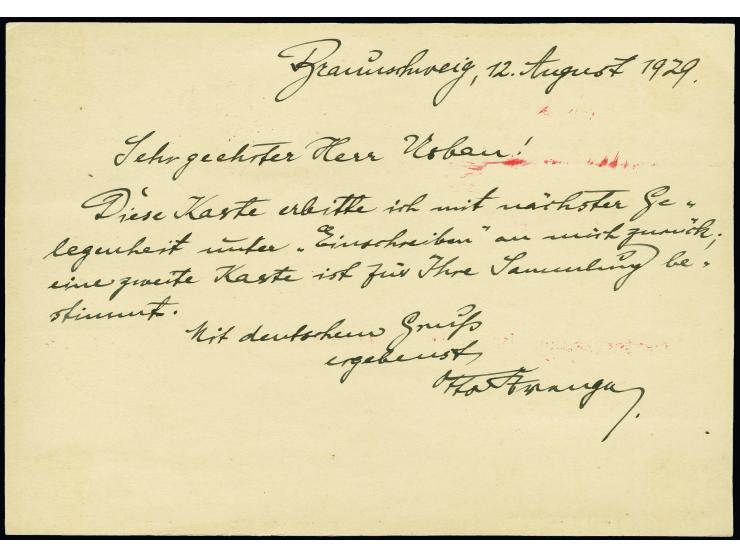 Braunschweig, 12. August 1929.
Sehr geehrter Herr Urban!
Diese Karte erbitte ich mit nächster Ge-
legenheit unter „Einschreiben" an mich zurück;
eine zweite Karte ist für Ihre Sammlung be-
stimmt.
Mit deutschem Gruß
ergebenst
Otto